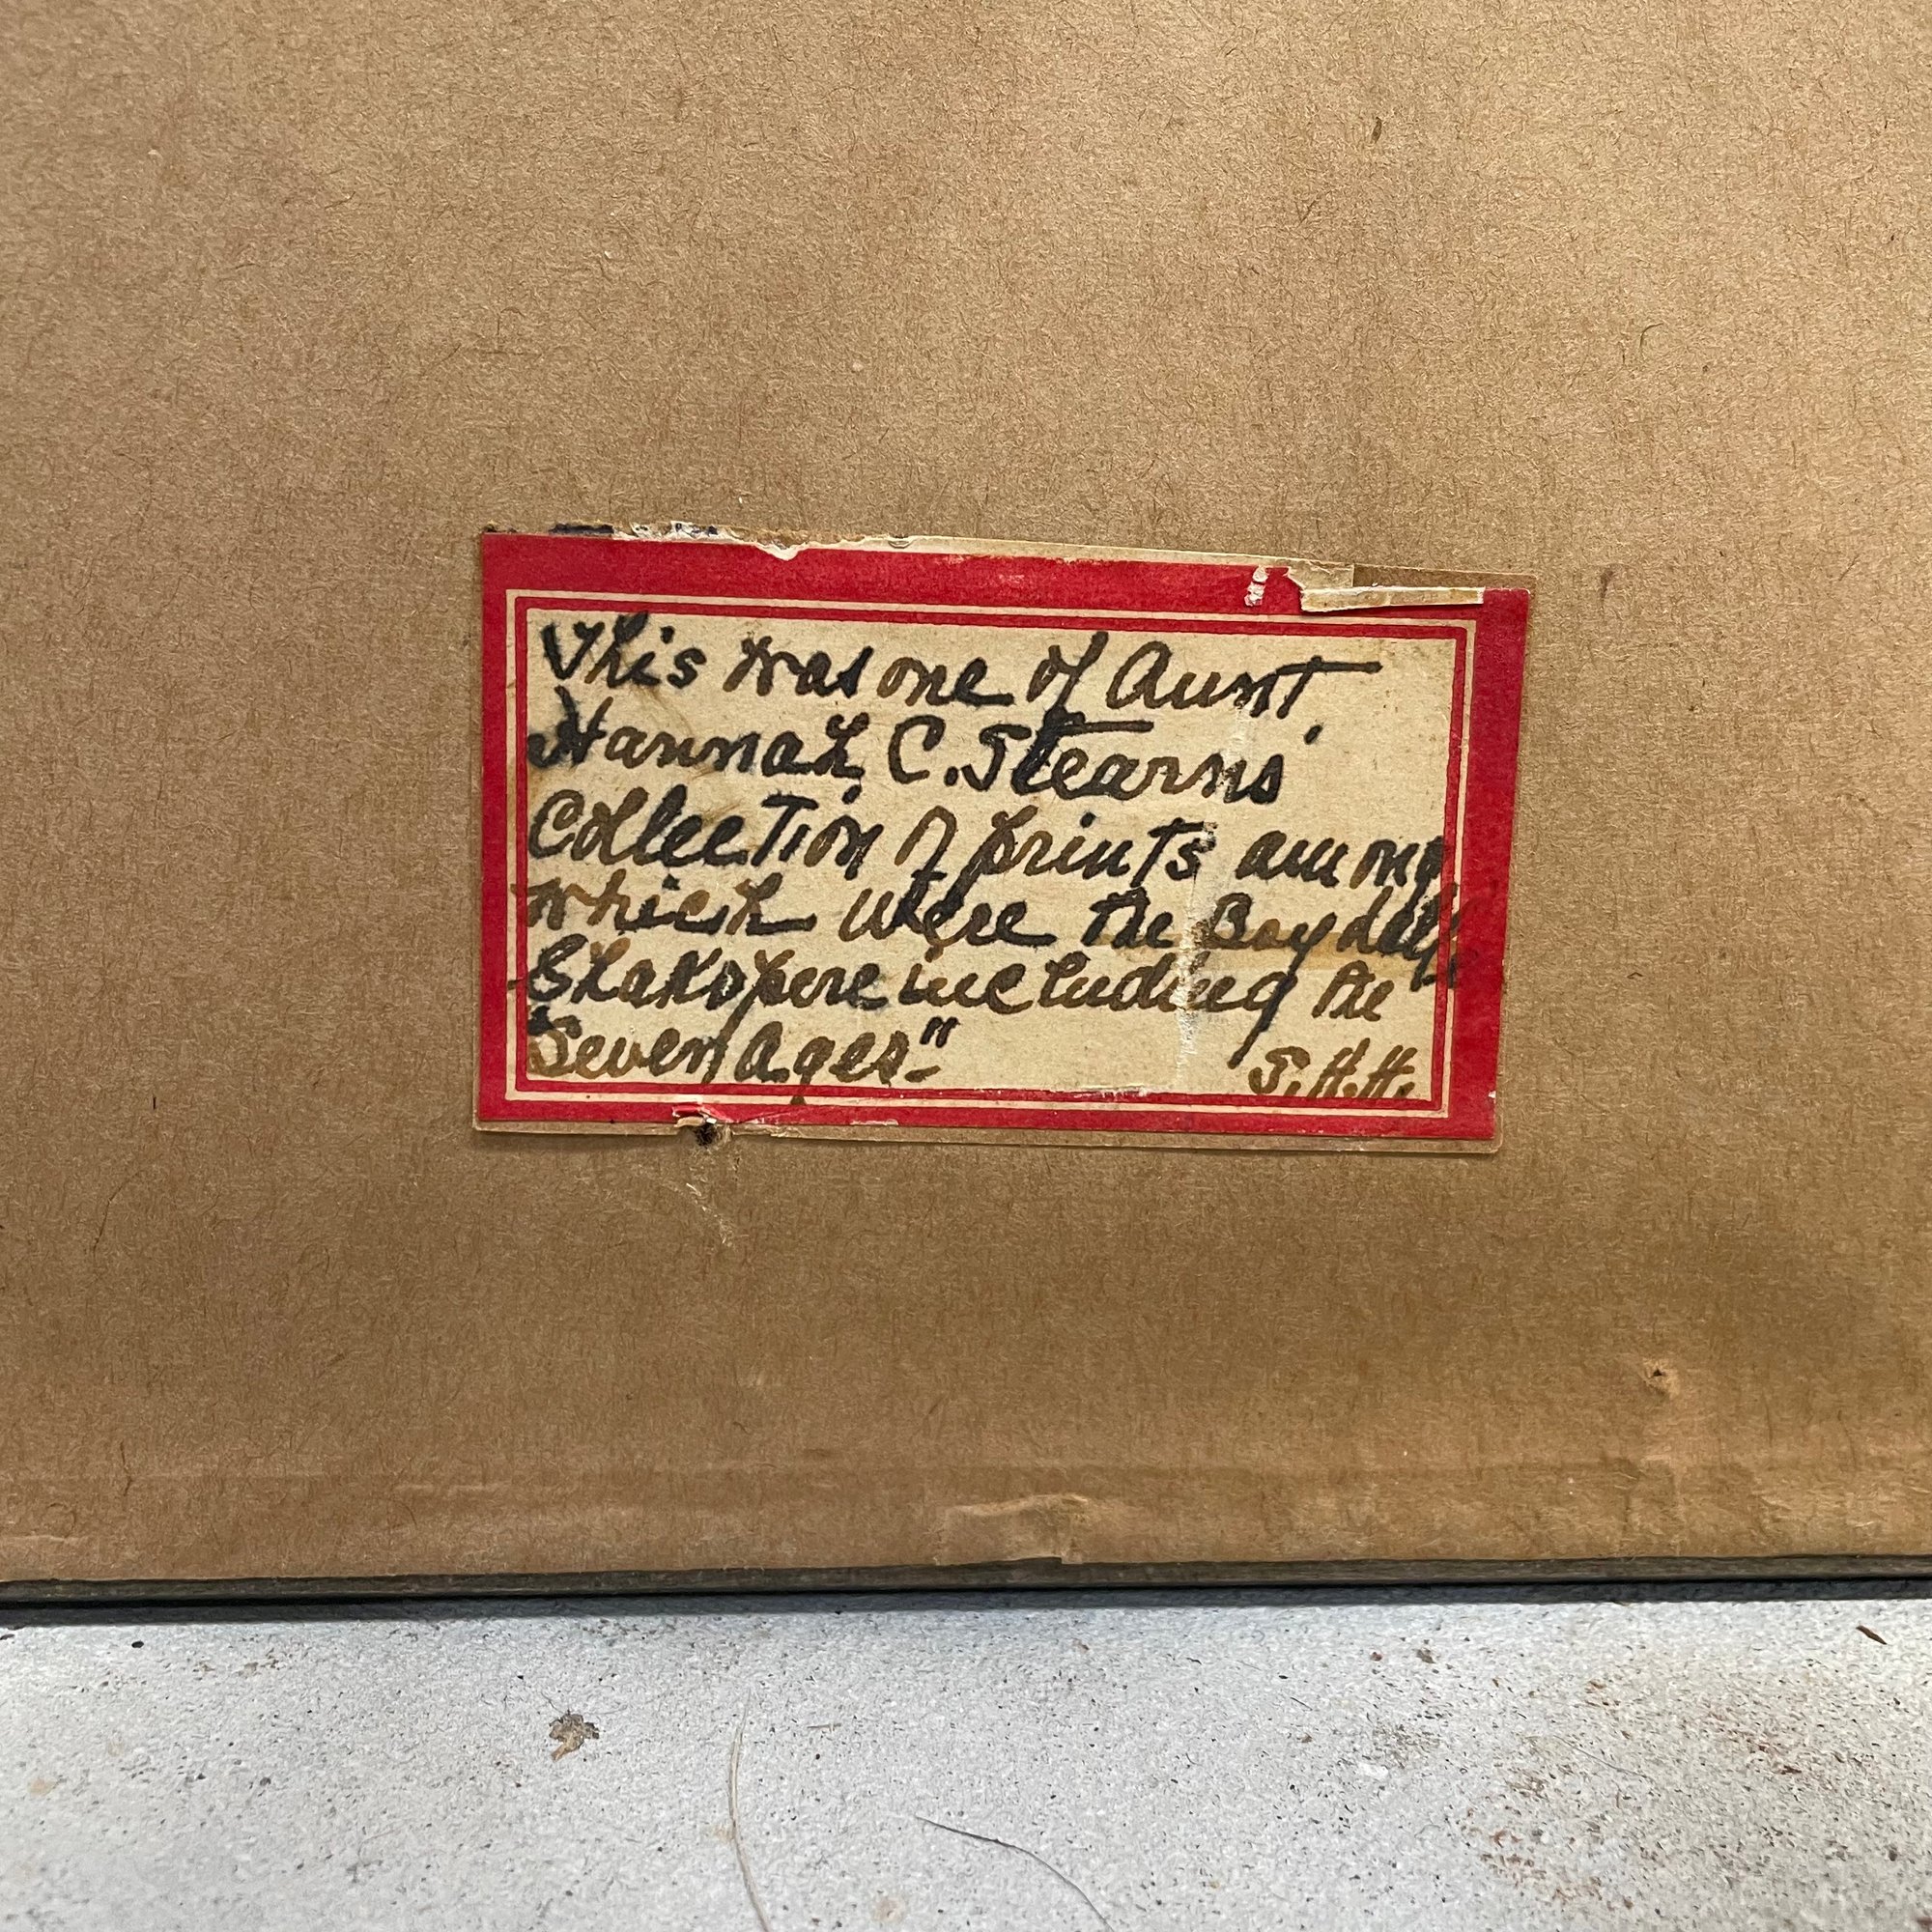 This was one of Aunt
Hannah C. Stearns'
Collection of prints among
which were the Boydell's
Shakspere including the
"Seven Ages"
S.H.H.